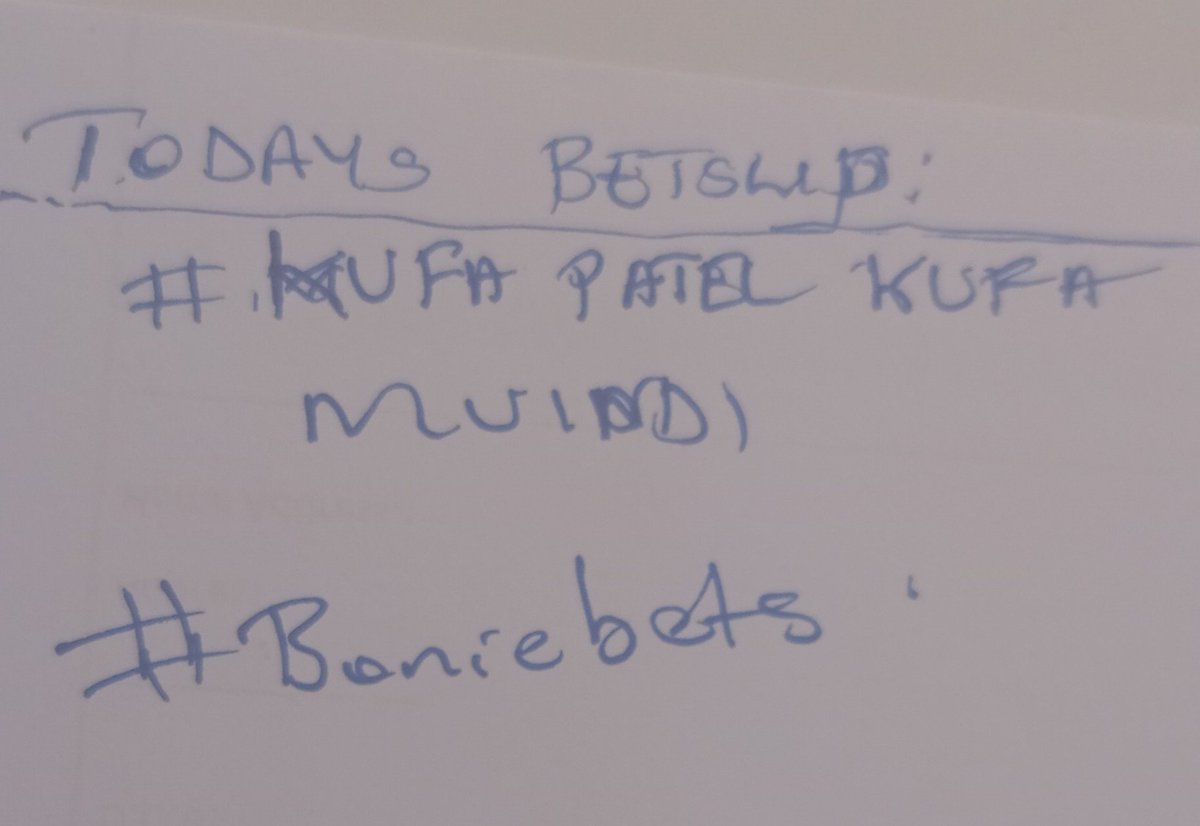 TODAYS BETSLIP:
#.KUFA PATEL KUFA
MUINDI
#Boniebets